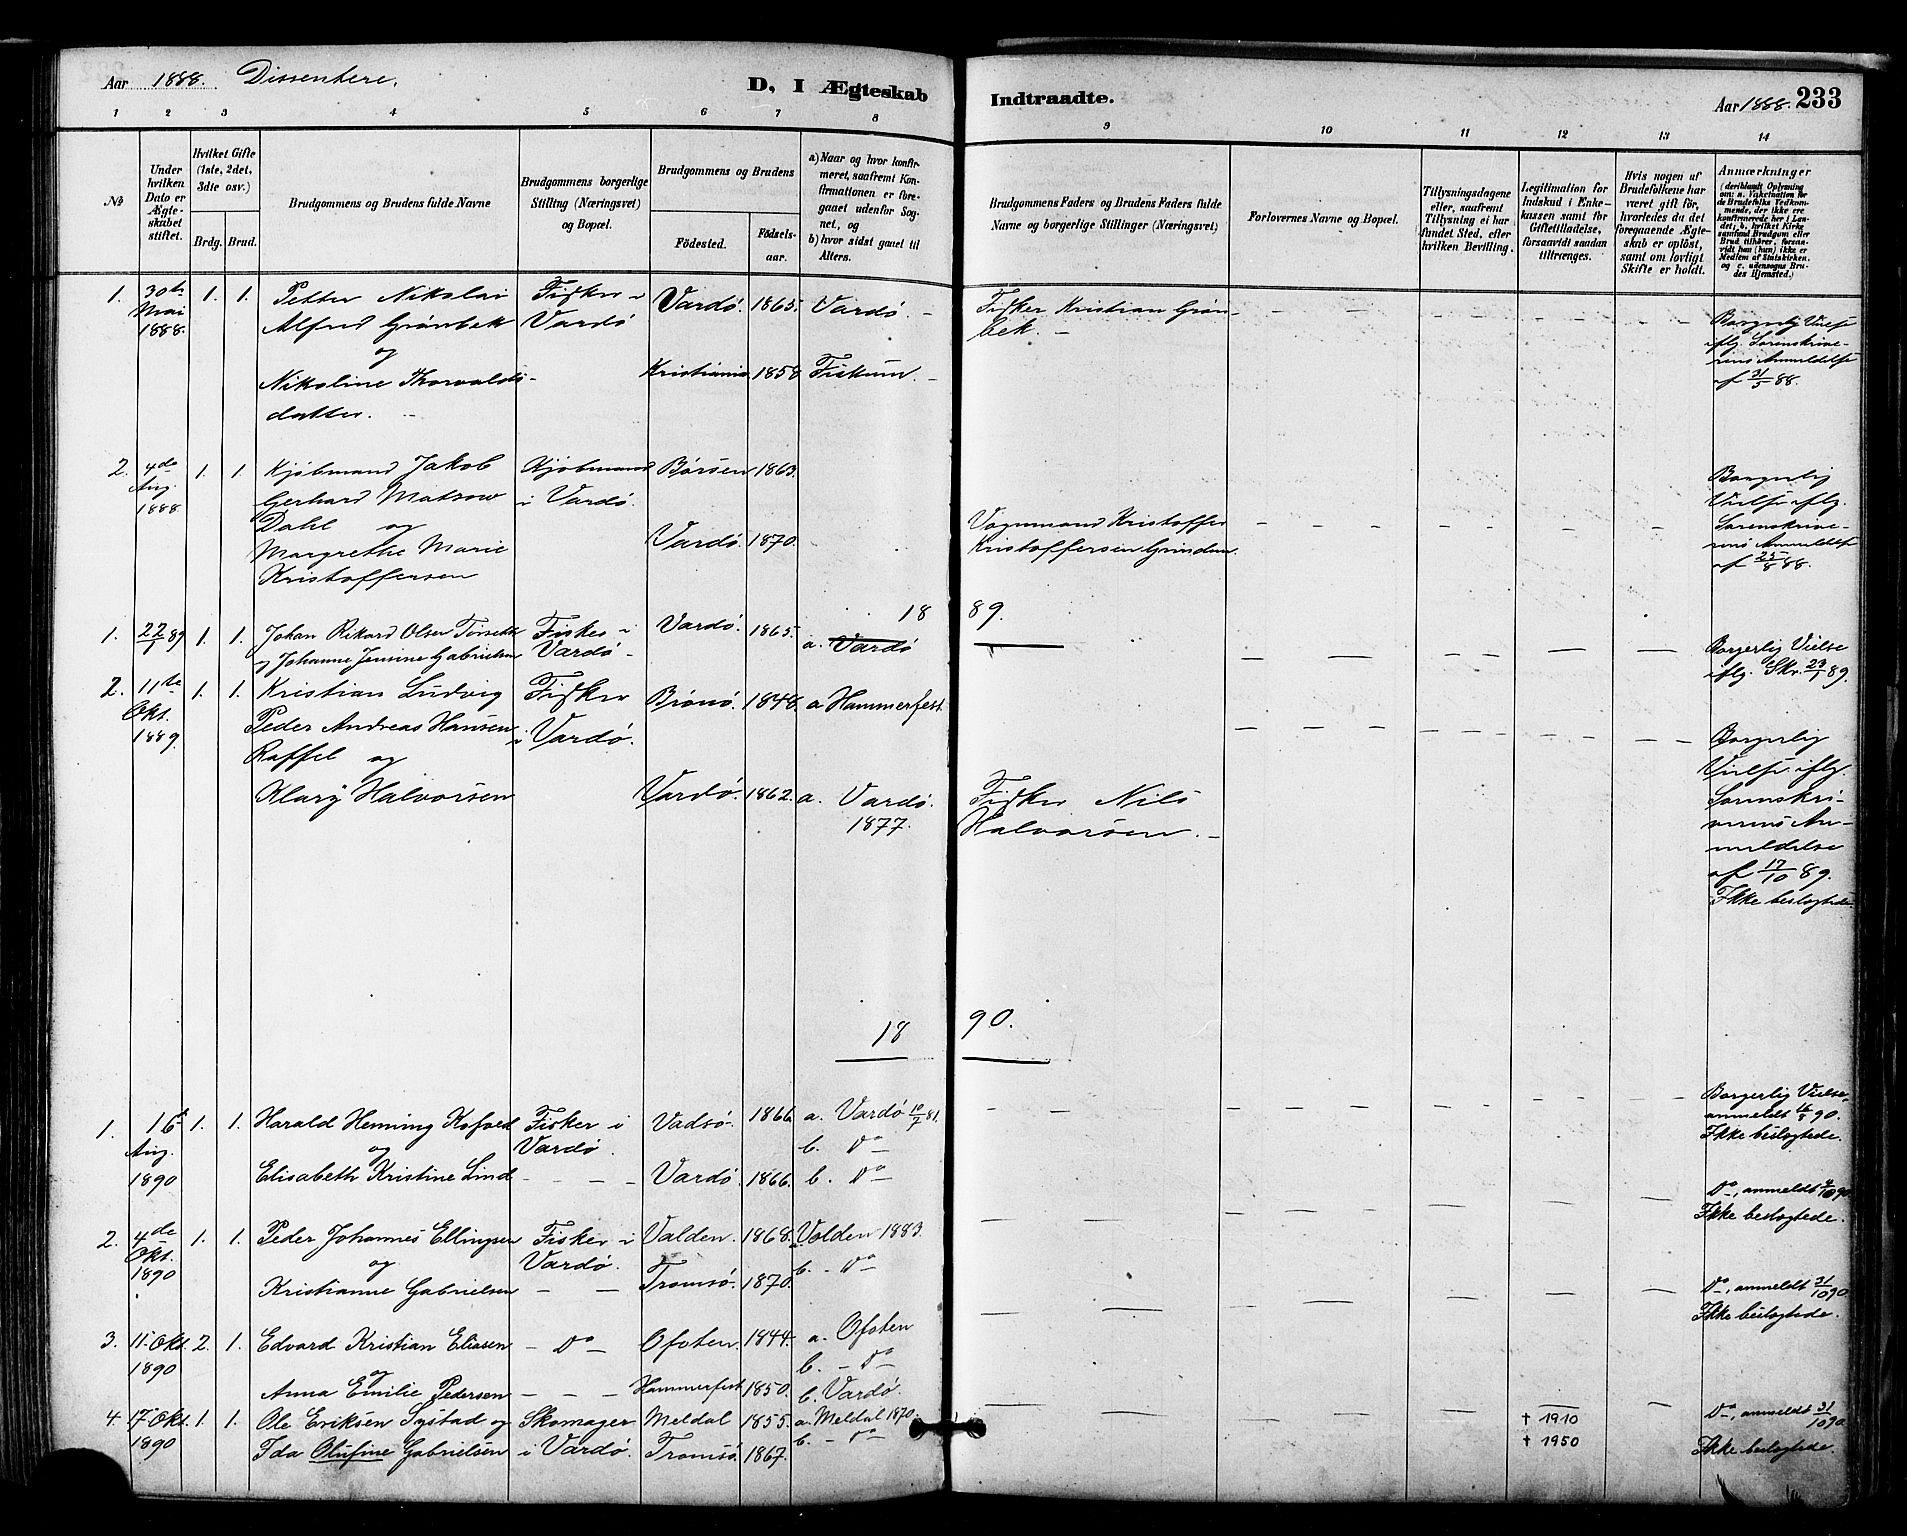 Aar 1888. Dissentere.
D, I Ægteskab
Indtraadte.
Aar 1888. 233
1 2 3 4 5 6 7 8 9 10 11 12 13 14
No
Under hvilken Dato er Ægteskabet stiftet.
Hvilket Gifte (1ste, 2det, 3die osv.)
Brdg. Brud.
Brudgommens og Brudens fulde Navne
Brudgommens borgerlige Stilling (Næringsvei) og Bopæl.
Brudgommens og Brudens
Fødested. Fødselsaar.
a) Naar og hvor konfirmeret, saafremt Konfirmationen er foregaaet udenfor Sognet, og
b) hvor sidst gaaet til Alters.
Brudgommens Faders og Brudens Faders fulde Navne og borgerlige Stillinger (Næringsvei)
Forlovernes Navne og Bopæl.
Tillysningsdagene eller, saafremt Tillysning ei har fundet Sted, efter hvilken Bevilling.
Legitimation for Indskud i Enkekassen samt for Giftetilladelse, forsaavidt saadan tiltrænges.
Hvis nogen af Brudefolkene har været gift før, hvorledes da det foregaaende Ægteskab er opløst, samt om lovligt Skifte er holdt.
Anmærkninger
(deriblandt Oplysning om: a. Vakcination for de Brudefolks Vedkommende, der ikke ere konfirmerede her i Landet; b. hvilket Kirkesamfund Brudgom eller Brud tilhører, forsaavidt han (hun) ikke er Medlem af Statskirken, og c. udensogns Brudes Hjemsted.)
1. 30te Mai 1888. 1. 1. Petter Nikolai Alfred Grønbek og Nikoline Thorvaldsdatter. -
Fisker i Vardø
Vardø. 1865. Vardø. -
Kristiania. 1858 Fiskum. -
Fisker Kristian Grønbek. -
Borgerlig Vielse iflg. Sorenskriverens Anmeldelse af 31/5 88.
2. 4de Aug. 1888. 1. 1. Kjøbmand Jakob Gerhard Matzow Dahl og Margrethe Marie Kristoffersen
Kjøbmand i Vardø.
Børsen 1863.
Vardø. 1870.
Vognmand Kristoffer Kristoffersen Grindem.
Borgerlig Vielse iflg. Sorenskriverens Anmeldelse af 25/8 88.
18 89.
1. 22/1 89 1. 1. Johan Rikard Olsen og Johanne Jensine Gabrielsen
Fisker i Vardø -
Vardø. 1865. a. Vardø
Borgerlig Vielse iflg. Skr. 23/1 89.
2. 11te Okt. 1889. 1. 1. Kristian Ludvig Peder Andreas Hansen Raffel og Klary Halvorsen
Fisker i Vardø.
Brønø. 1848. a Hammerfest.
Vardø. 1862. a. Vardø. 1877.
Fisker Nils Halvorsen. -
Borgerlig Vielse iflg. Sorenskriverens Anmeldelse af 17/10 89.
Ikke beslægtede.
18 90.
1. 16 Aug. 1890 1. 1. Harald Henning Kofoed og Elisabeth Kristine Lind
Fisker i Vardø.
Vadsø. 1866. a. Vardø 10/7 81.
b. Do
Vardø. 1866. b. Do
Borgerlig Vielse, anmeldt 16/8 90.
Ikke beslægtede.
2. 4de Okt. 1890 1. 1. Peder Johannes Ellingsen og Kristianne Gabrielsen
Fisker i Vardø.
Valden. 1868. a. Volden 1883.
Tromsø. 1870. b. - Do
Do, anmeldt 4/10 90.
Ikke beslægtede.
3. 11. Okt. 1890 2. 1. Edvard Kristian Eliasen og Anna Emilie Pedersen
- Do -
Ofoten. 1844. a. Ofoten
b. - Do
Hammerfest 1850. b. Vardø.
Do, anmeldt 31/10 90.
Ikke beslægtede.
4. 17 Okt. 1890 1. 1. Ole Eriksen Systad og Ida Olufine Gabrielsen
Skomager i Vardø.
Meldal 1855. a. Meldal 1870.
Tromsø. 1867. b. - Do
† 1910
† 1950
Do, anmeldt 31/10 90
Ikke beslægtede.